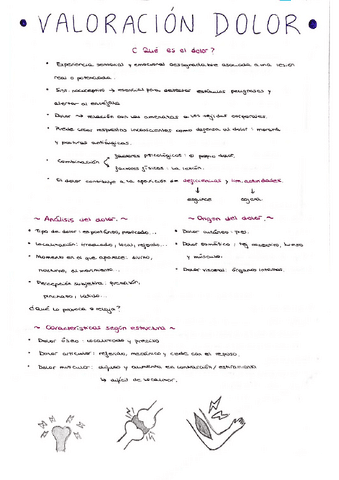 • VALORACIÓN DOLOR •
¿Qué es el dolor?
• Experiencia sensorial y emocional desagradable asociada a una lesión
real o potencial.
• Sist. nociceptivo → esencial para detectar estímulos peligrosos y
alertar al encéfalo
• Dolor → relación con las amenazas a los tejidos corporales.
• Puede crear respuestas inconscientes como defensa al dolor:
y posturas antiálgicas.
• Combinación factores psicológicos: el propio dolor.
factores físicos: la lesión.
• El dolor contribuye a la aparición de deficiencias y lim. actividades
↓ ↓
~ Análisis del dolor. ~
• Tipo de dolor:
• Localización: irradiado, local, referido...
• Momento en el que aparece: diurno,
nocturno, al movimiento...
• Percepción subjetiva: presión,
pinchazo, latido...
¿Qué lo provoca o relaja?
~ Origen del dolor. ~
• Dolor cutáneo: piel.
• Dolor somático: tej. nervioso, hueso
y músculo.
• Dolor visceral: órganos internos.
~ Características según estructura ~
• Dolor óseo: localizado y preciso
• Dolor articular: referido, mecánico y cede con el reposo.
• Dolor muscular: difuso y aumenta en contracción/estiramiento
↳ difícil de localizar.